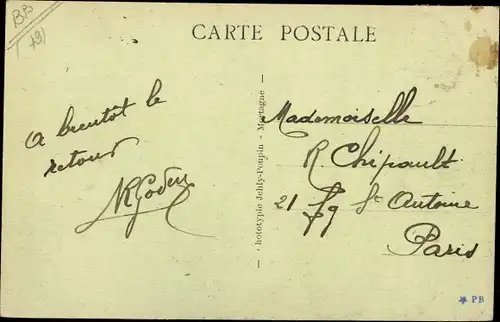 BB
79)
CARTE POSTALE
A bientôt le
retour
Phototypie Jehly-Poupin - Mortagne
Mademoiselle
R. Chipault
21 Fg St Antoine
Paris
PB